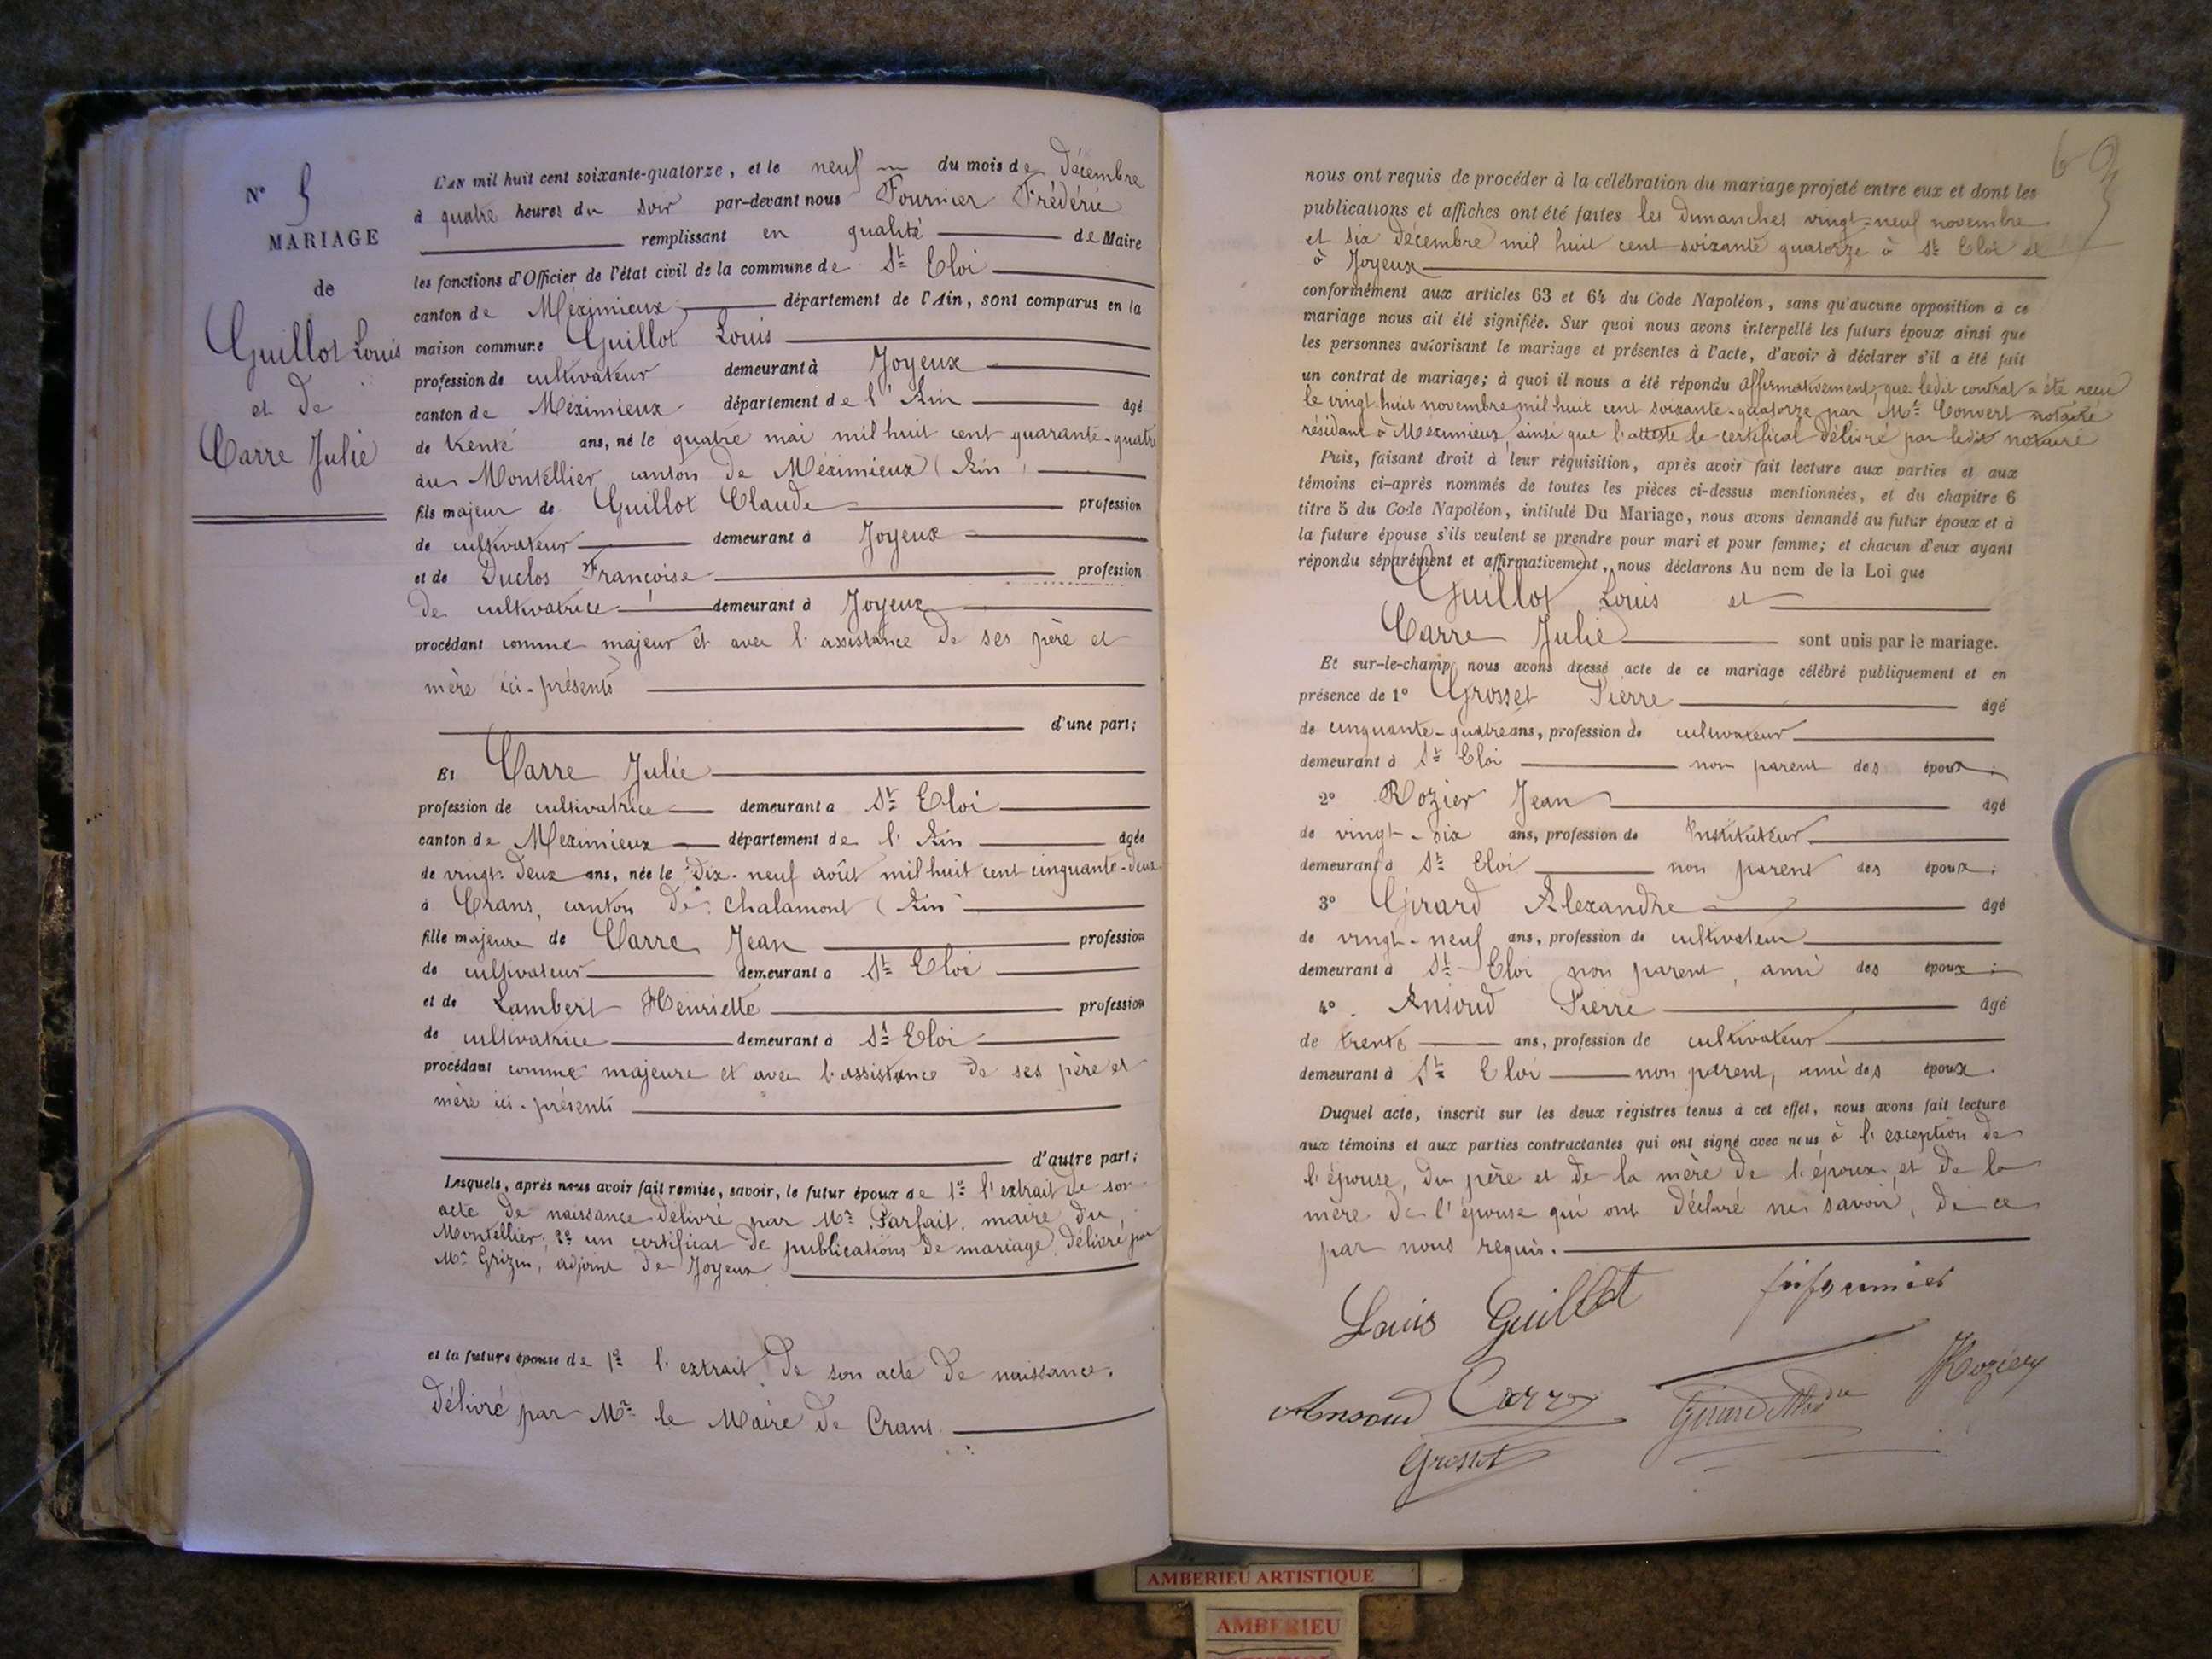 N° 5
MARIAGE
de
Guillot Louis
et de
Carre Julie
L'AN mil huit cent soixante-quatorze, et le neuf du mois de décembre
à quatre heures du soir par-devant nous Fournier Frédéric
remplissant en qualité de Maire
les fonctions d'Officier de l'état civil de la commune de St Eloi
canton de Méximieux département de l'Ain, sont comparus en la
maison commune Guillot Louis
profession de cultivateur demeurant à Joyeux
canton de Méximieux département de l'Ain âgé
de trente ans, né le quatre mai mil huit cent quarante-quatre
au Montellier canton de Méximieux (Ain)
fils majeur de Guillot Claude profession
de cultivateur demeurant à Joyeux
et de Duclos Françoise profession
de cultivatrice demeurant à Joyeux
procédant comme majeur et avec l'assistance de ses père et
mère ici-présents
d'une part;
Et Carre Julie
profession de cultivatrice demeurant à St Eloi
canton de Meximieux département de l'Ain âgée
de vingt-deux ans, née le dix-neuf août mil huit cent cinquante-deux
à Crans, canton de Chalamont (Ain
fille majeure de Carre Jean profession
de cultivateur demeurant à St Eloi
et de Lambert Henriette profession
de cultivatrice demeurant à St Eloi
procédant comme majeure et avec l'assistance de ses père et
mère ici-présents
d'autre part;
Lesquels, après nous avoir fait remise, savoir, le futur époux de 1° l'extrait de son
acte de naissance délivré par Mr Parfait, maire du
Montellier; 2° un certificat de publications de mariage délivré par
Mr Grizin, adjoint de Joyeux
et la future épouse de 1° l'extrait de son acte de naissance,
délivré par Mr le Maire de Crans
63
nous ont requis de procéder à la célébration du mariage projeté entre eux et dont les
publications et affiches ont été faites les dimanches vingt-neuf novembre
et six décembre mil huit cent soixante quatorze à St Eloi et
à Joyeux
conformément aux articles 63 et 64 du Code Napoléon, sans qu'aucune opposition à ce
mariage nous ait été signifiée. Sur quoi nous avons interpellé les futurs époux ainsi que
les personnes autorisant le mariage et présentes à l'acte, d'avoir à déclarer s'il a été fait
un contrat de mariage; à quoi il nous a été répondu affirmativement, que ledit contrat a été reçu
le vingt huit novembre mil huit cent soixante-quatorze par Me Convert notaire
résidant à Méximieux, ainsi que l'atteste le certificat délivré par ledit notaire
Puis, faisant droit à leur réquisition, après avoir fait lecture aux parties et aux
témoins ci-après nommés de toutes les pièces ci-dessus mentionnées, et du chapitre 6
titre 5 du Code Napoléon, intitulé Du Mariage, nous avons demandé au futur époux et à
la future épouse s'ils veulent se prendre pour mari et pour femme; et chacun d'eux ayant
répondu séparément et affirmativement, nous déclarons Au nom de la Loi que
Guillot Louis et
Carre Julie sont unis par le mariage.
Et sur-le-champ nous avons dressé acte de ce mariage célébré publiquement et en
présence de 1° Grosset Pierre âgé
de cinquante-quatre ans, profession de cultivateur
demeurant à St Eloi non parent des époux;
2° Rozier Jean âgé
de vingt-six ans, profession de Instituteur
demeurant à St Eloi non parent des époux;
3° Girard Alexandre âgé
de vingt-neuf ans, profession de cultivateur
demeurant à St Eloi non parent, ami des époux;
4° Ansoud Pierre âgé
de trente ans, profession de cultivateur
demeurant à St Eloi non parent, ami des époux.
Duquel acte, inscrit sur les deux registres tenus à cet effet, nous avons fait lecture
aux témoins et aux parties contractantes qui ont signé avec nous à l'exception de
l'épouse, du père et de la mère de l'époux et de la
mère de l'épouse qui ont déclaré ne savoir, de ce
par nous requis.
Louis Guillot
Ansoud Carre Girard Rozier
Grosset
AMBERIEU ARTISTIQUE
AMBERIEU